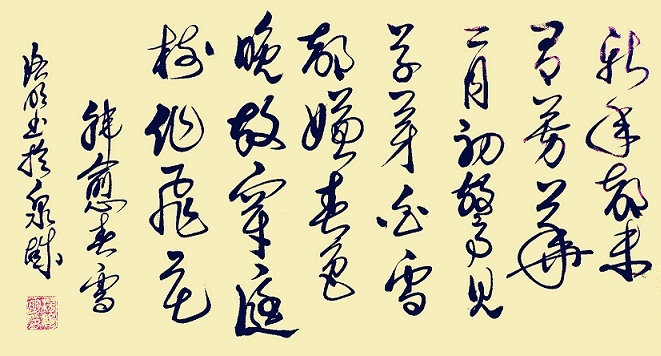 新年都未
有芳華
二月初驚見
草芽白雪
卻嫌春色
晚故穿庭
樹作飛花
韓愈春雪
明書於泉城